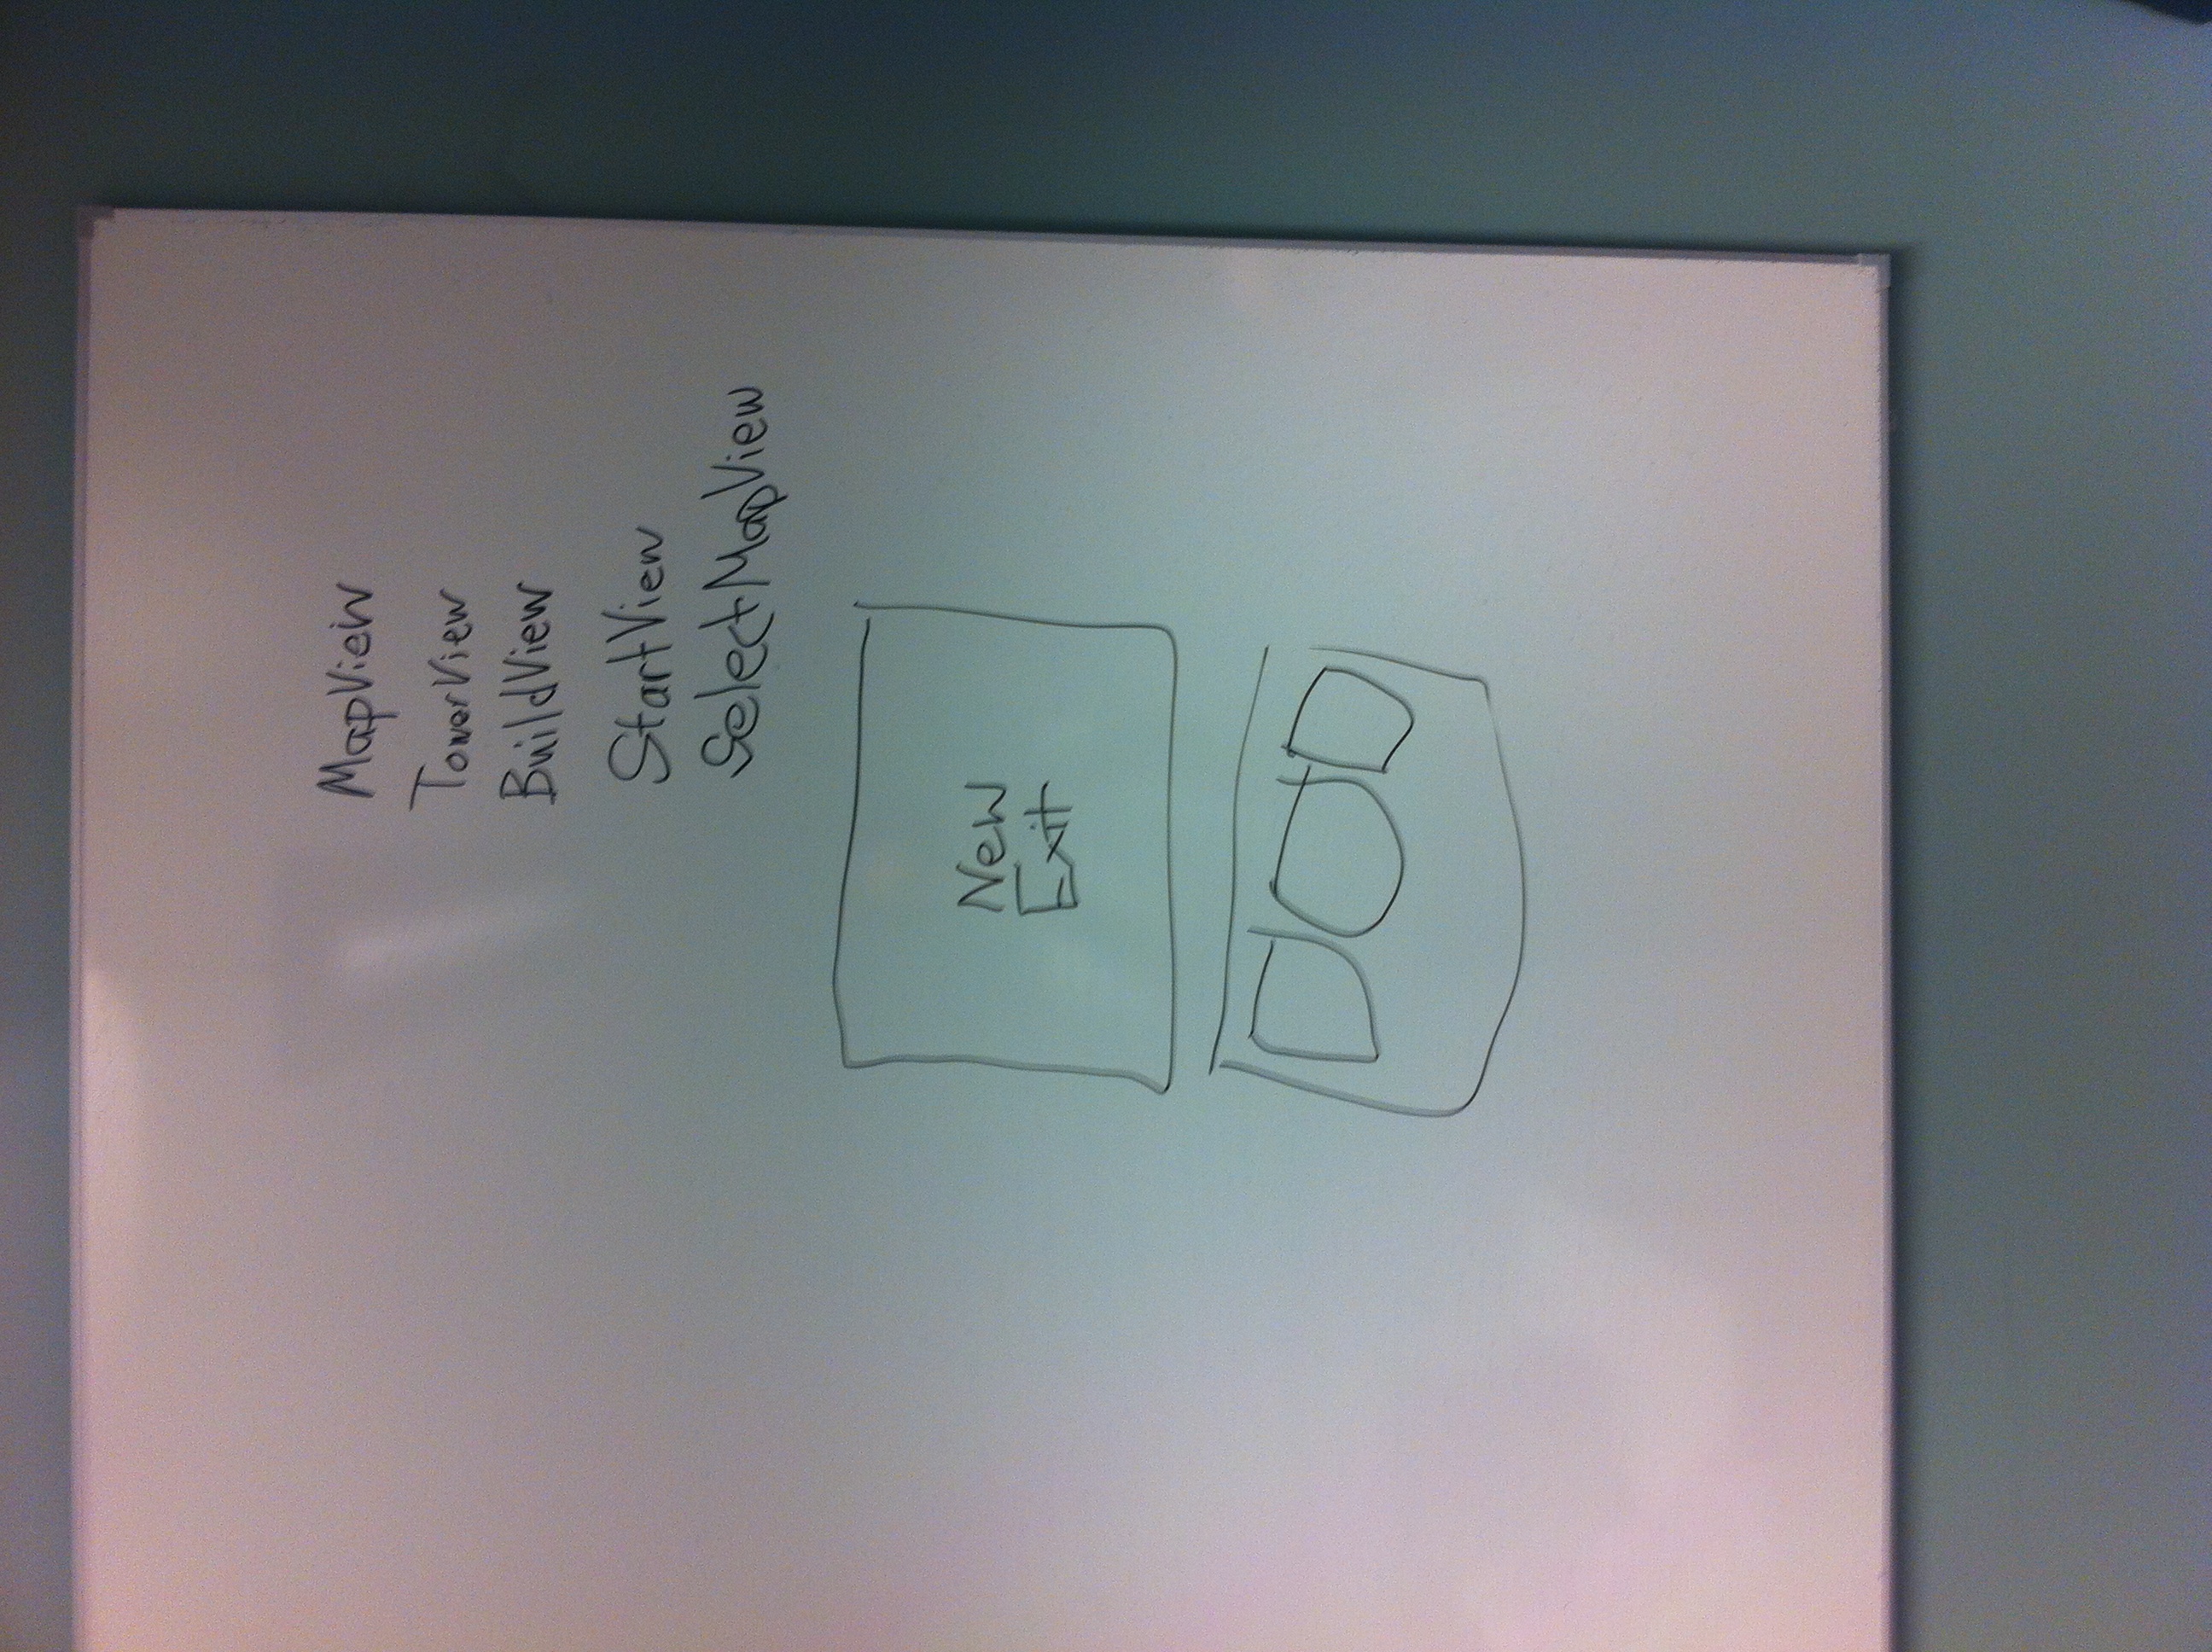 MapView
TowerView
BuildView
StartView
SelectMapView
New
Exit